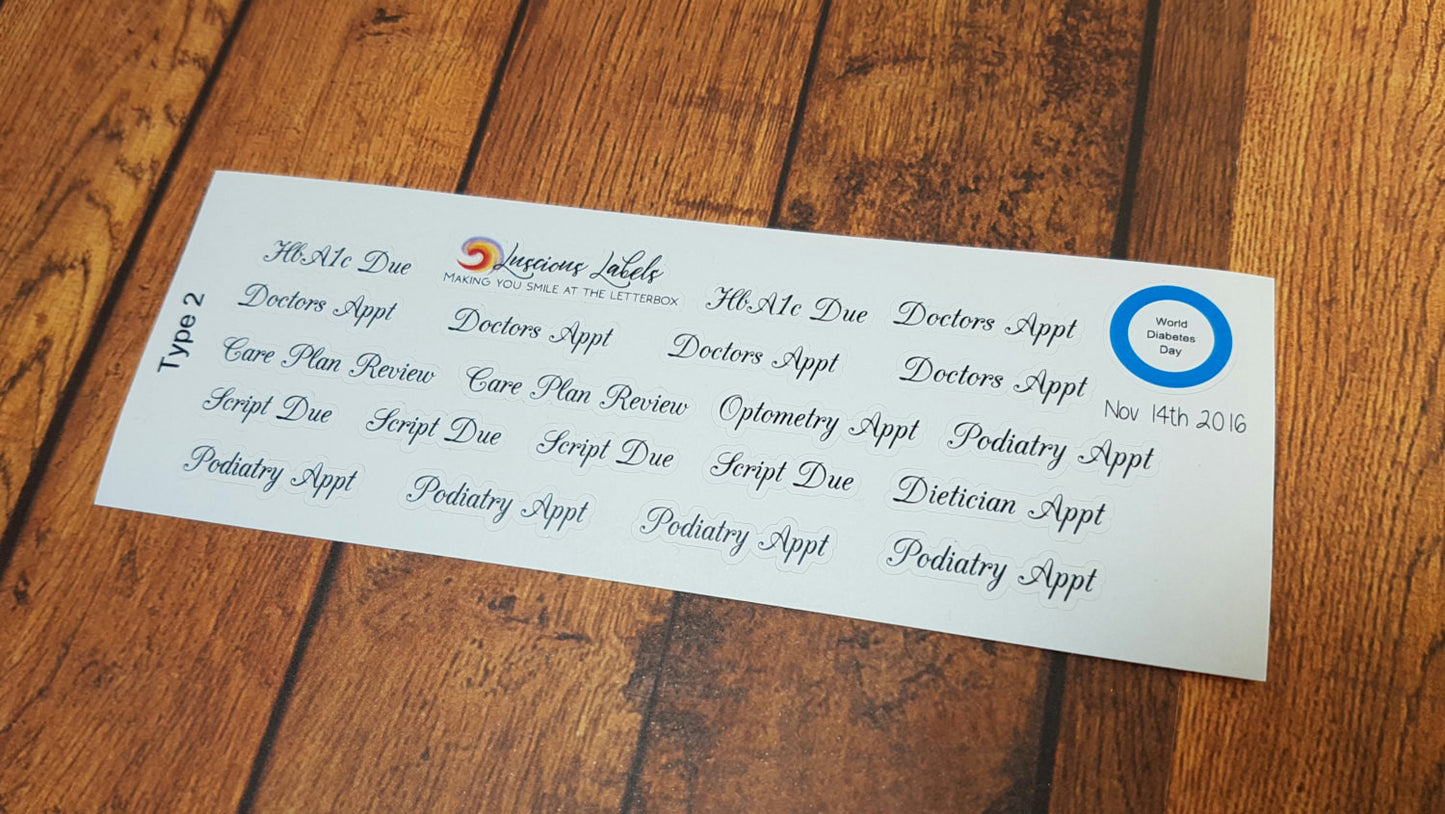 Type 2
HbA1c Due
Luscious Labels
MAKING YOU SMILE AT THE LETTERBOX
HbA1c Due Doctors Appt
World
Diabetes
Day
Nov 14th 2016
Doctors Appt Doctors Appt Doctors Appt Doctors Appt
Care Plan Review Care Plan Review Optometry Appt Podiatry Appt
Script Due Script Due Script Due Script Due Dietician Appt
Podiatry Appt Podiatry Appt Podiatry Appt Podiatry Appt